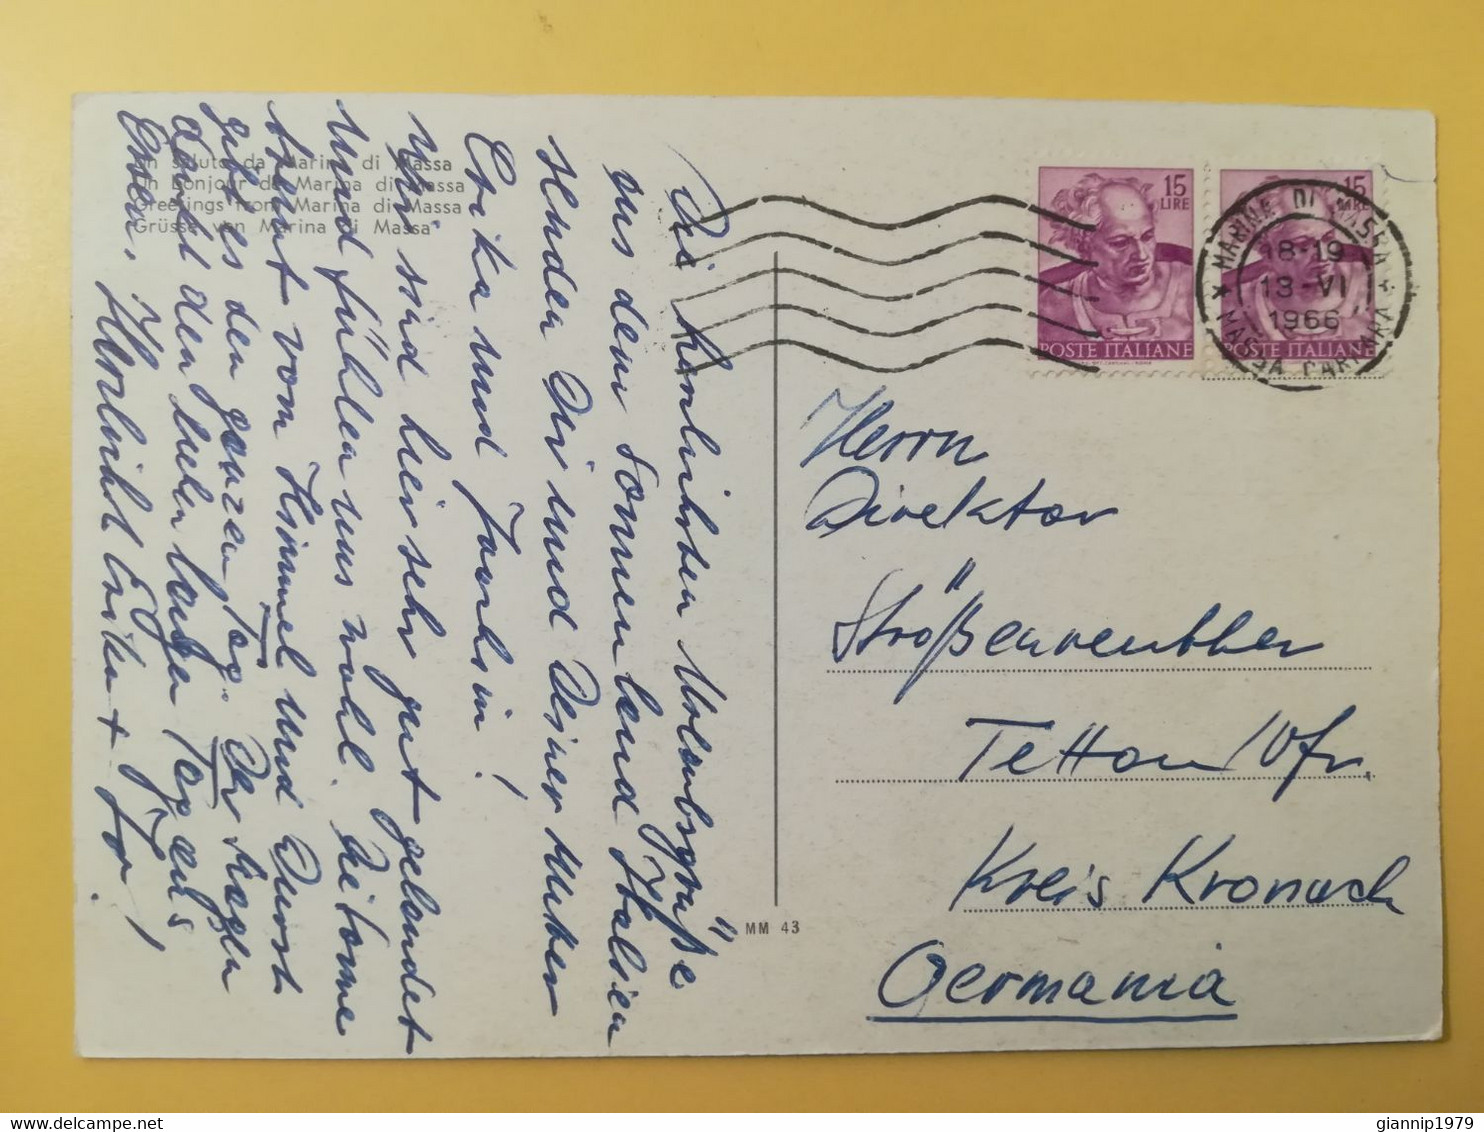 Un saluto da Marina di Massa
Un bonjour de Marina di Massa
Greetings from Marina di Massa
Grüsse von Marina di Massa
Die herzlichsten Urlaubsgrüße
aus dem Sonnenland Italien
senden Dir und Deiner Mutter
Erika und Joachim!
Wir sind hier sehr gut gelandet
und fühlen uns wohl. Die Sonne
brennt vom Himmel und Durst
gibt es den ganzen Tag. Der Magen
den lieben langen Tag aus
Herzlichst Erika +
15
LIRE
POSTE ITALIANE
15
LIRE
POSTE ITALIANE
MARINA DI MASSA
18-19
13 VI
1966
MASSA CARRARA
Herrn
Direktor
Tettau/Ofr.
Kreis Kronach
Germania
MM 43
giannip1979